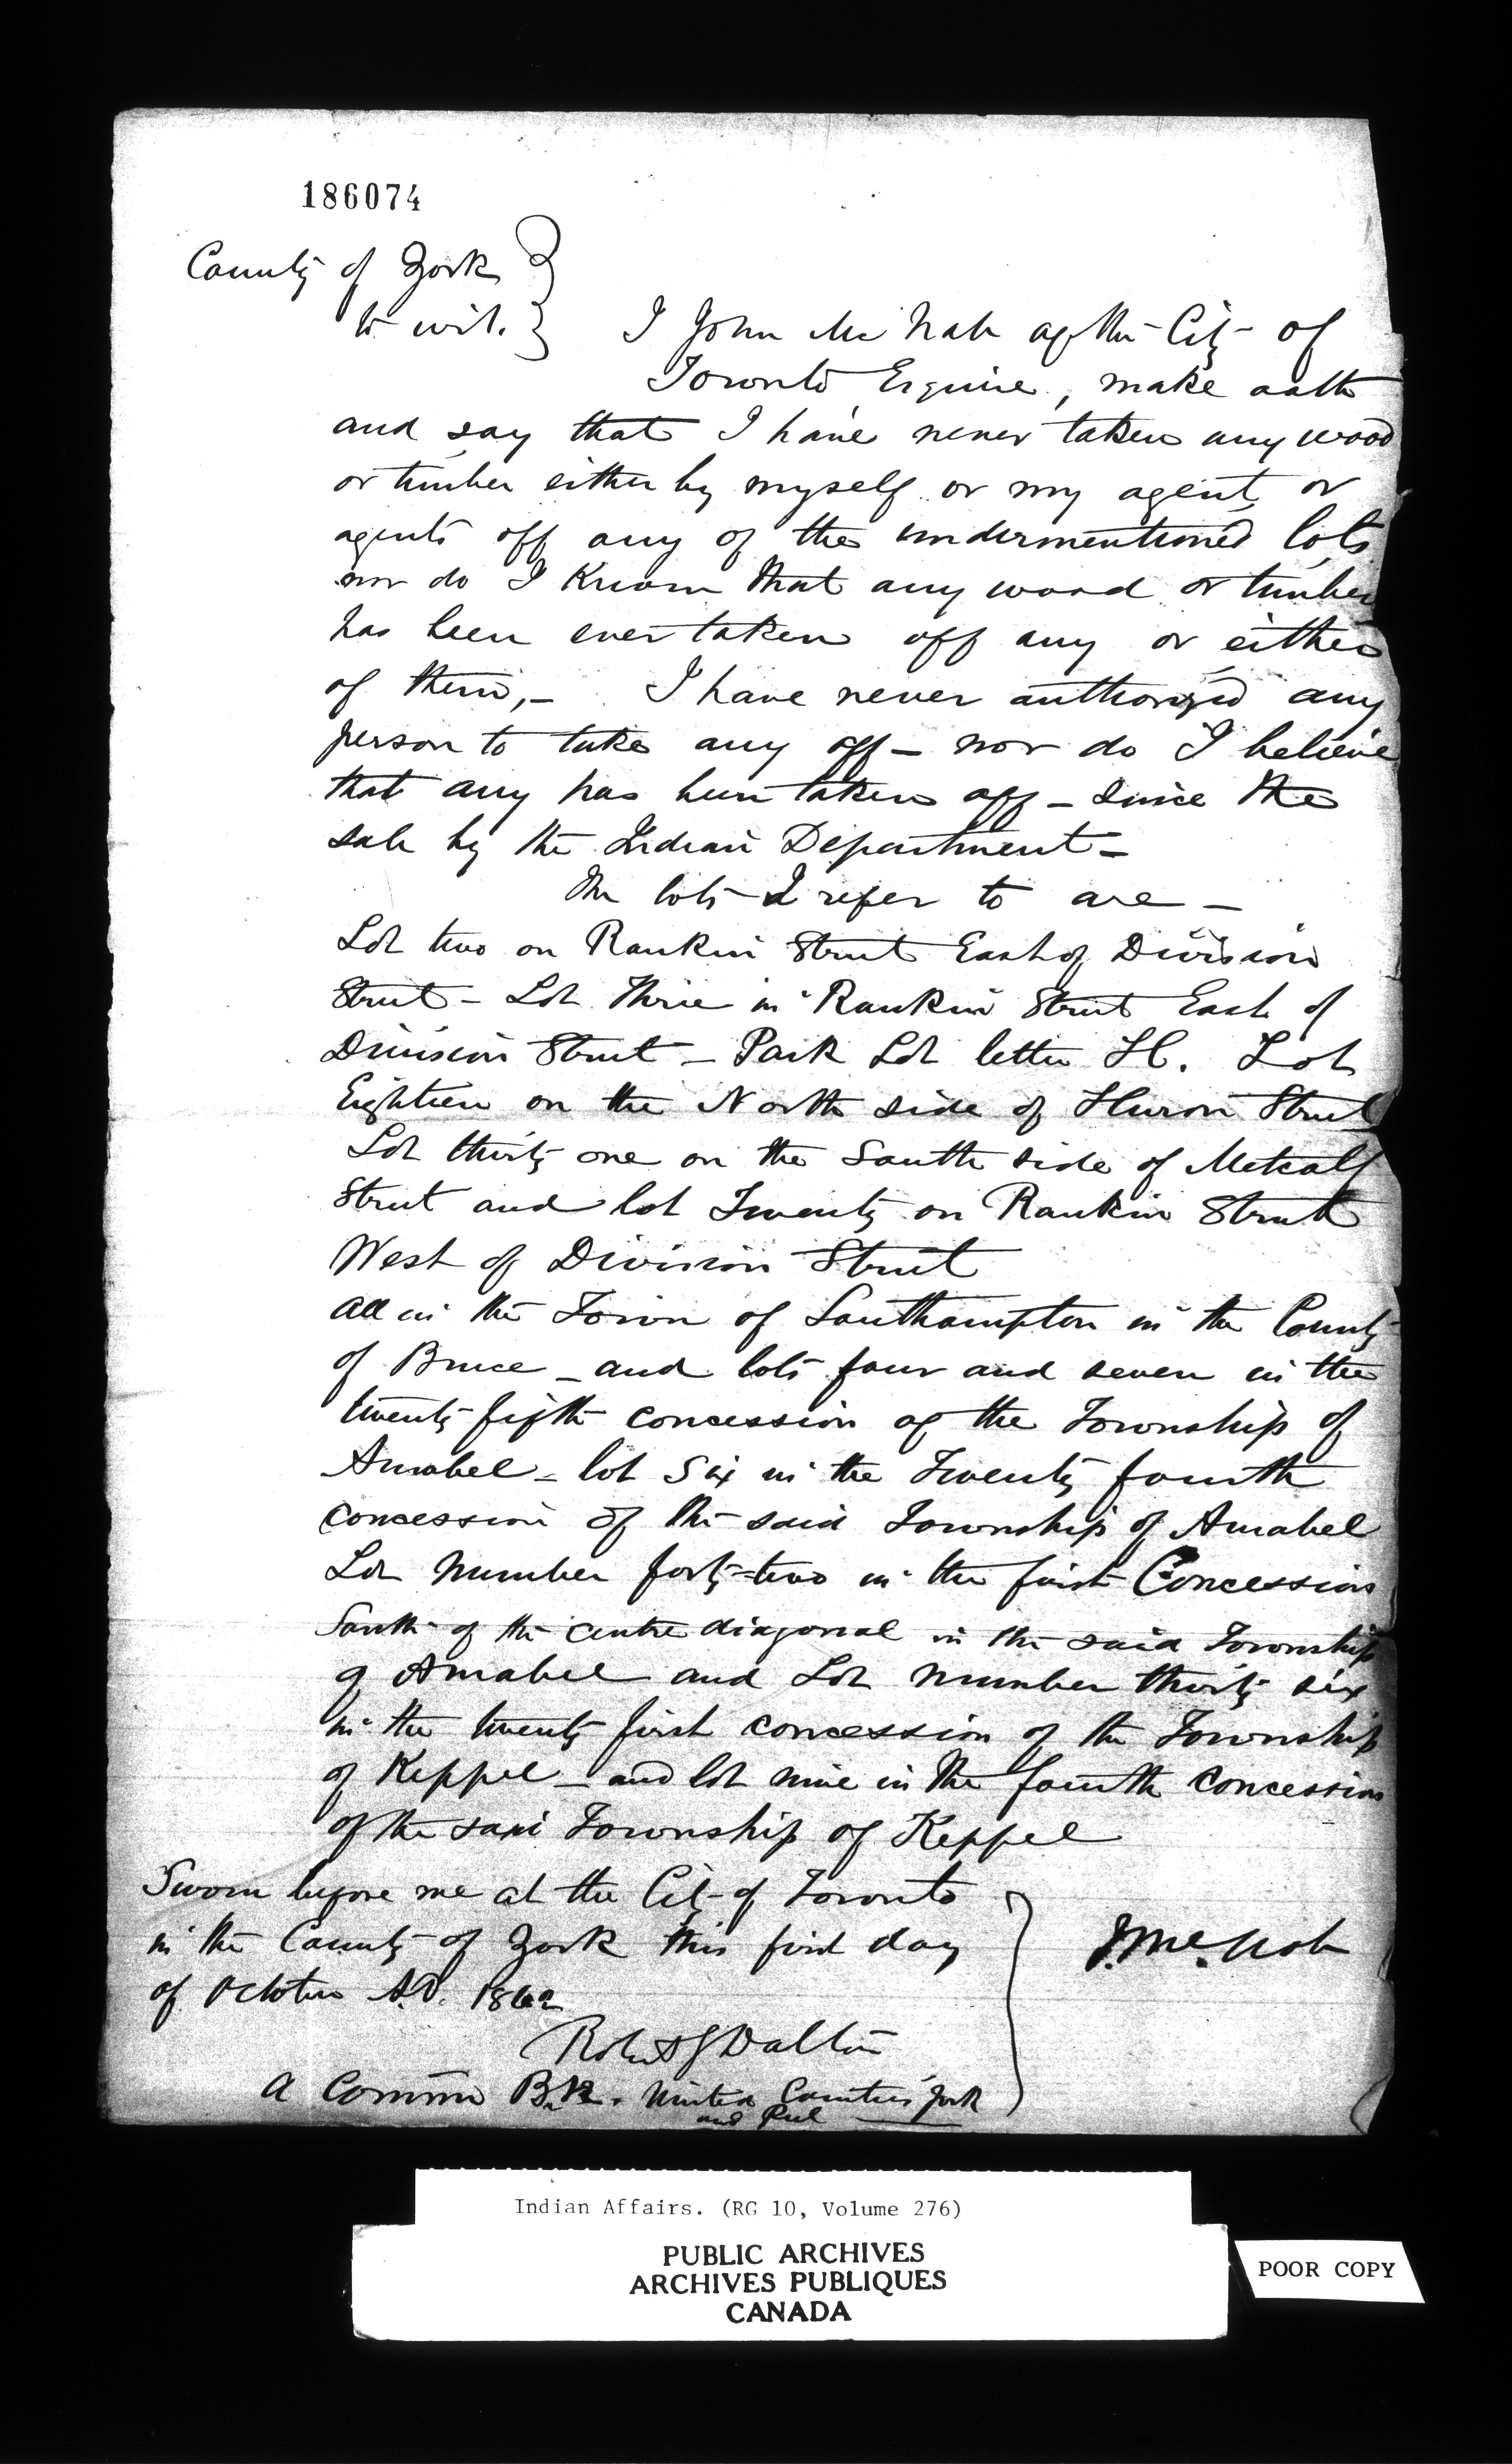 186074
County of York }
to wit. } I John McNab of the City of
Toronto Esquire, make oath
and say that I have never taken any wood
or timber either by myself or my agent or
agents off any of the undermentioned lots
nor do I know that any wood or timber
has been ever taken off any or either
of them, – I have never authorized any
person to take any off – nor do I believe
that any has been taken off – since the
sale by the Indian Department –
The lots I refer to are –
Lot two on Rankin Street East of Division
Street – Lot Three in Rankin Street East of
Division Street – Park Lot letter H. Lot
Eighteen on the North side of Huron Street
Lot thirty one on the South side of Metcalf
Street and lot Twenty on Rankin Street
West of Division Street
all in the Town of Southampton in the County
of Bruce – and lots four and seven in the
twenty fifth concession of the Township of
Amabel – lot Six in the Twenty fourth
concession of the said Township of Amabel
Lot Number forty-two in the first Concession
South of the centre diagonal in the said Township
of Amabel and Lot Number thirty six
in the twenty first concession of the Township
of Keppel – and lot nine in the fourth concession
of the said Township of Keppel
Sworn before me at the City of Toronto
in the County of York this first day
of October A.D. 1862
J. McNab
Robert G Dalton
A Commr B.R. United Counties York
and Peel
Indian Affairs. (RG 10, Volume 276)
PUBLIC ARCHIVES
ARCHIVES PUBLIQUES
CANADA
POOR COPY